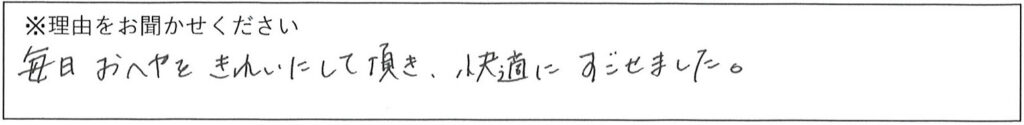 ※理由をお聞かせください
毎日 おへやを きれいにして頂き、快適に すごせました。